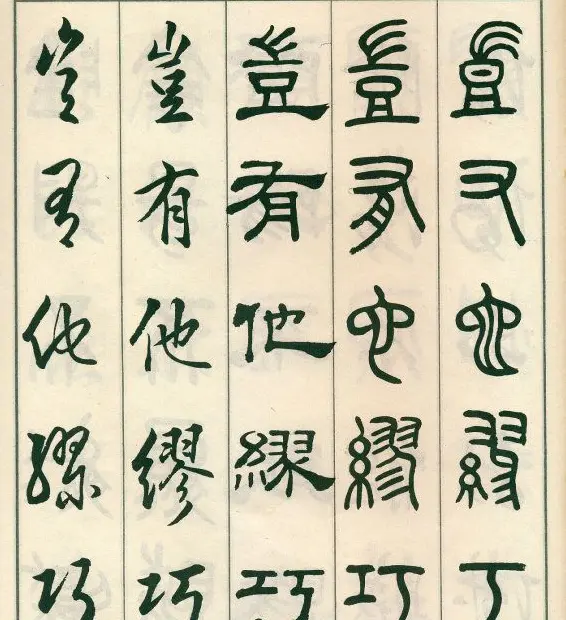 豈有他繆巧
豈有他繆巧
豈有他繆巧
豈有他繆巧
豈有他繆巧